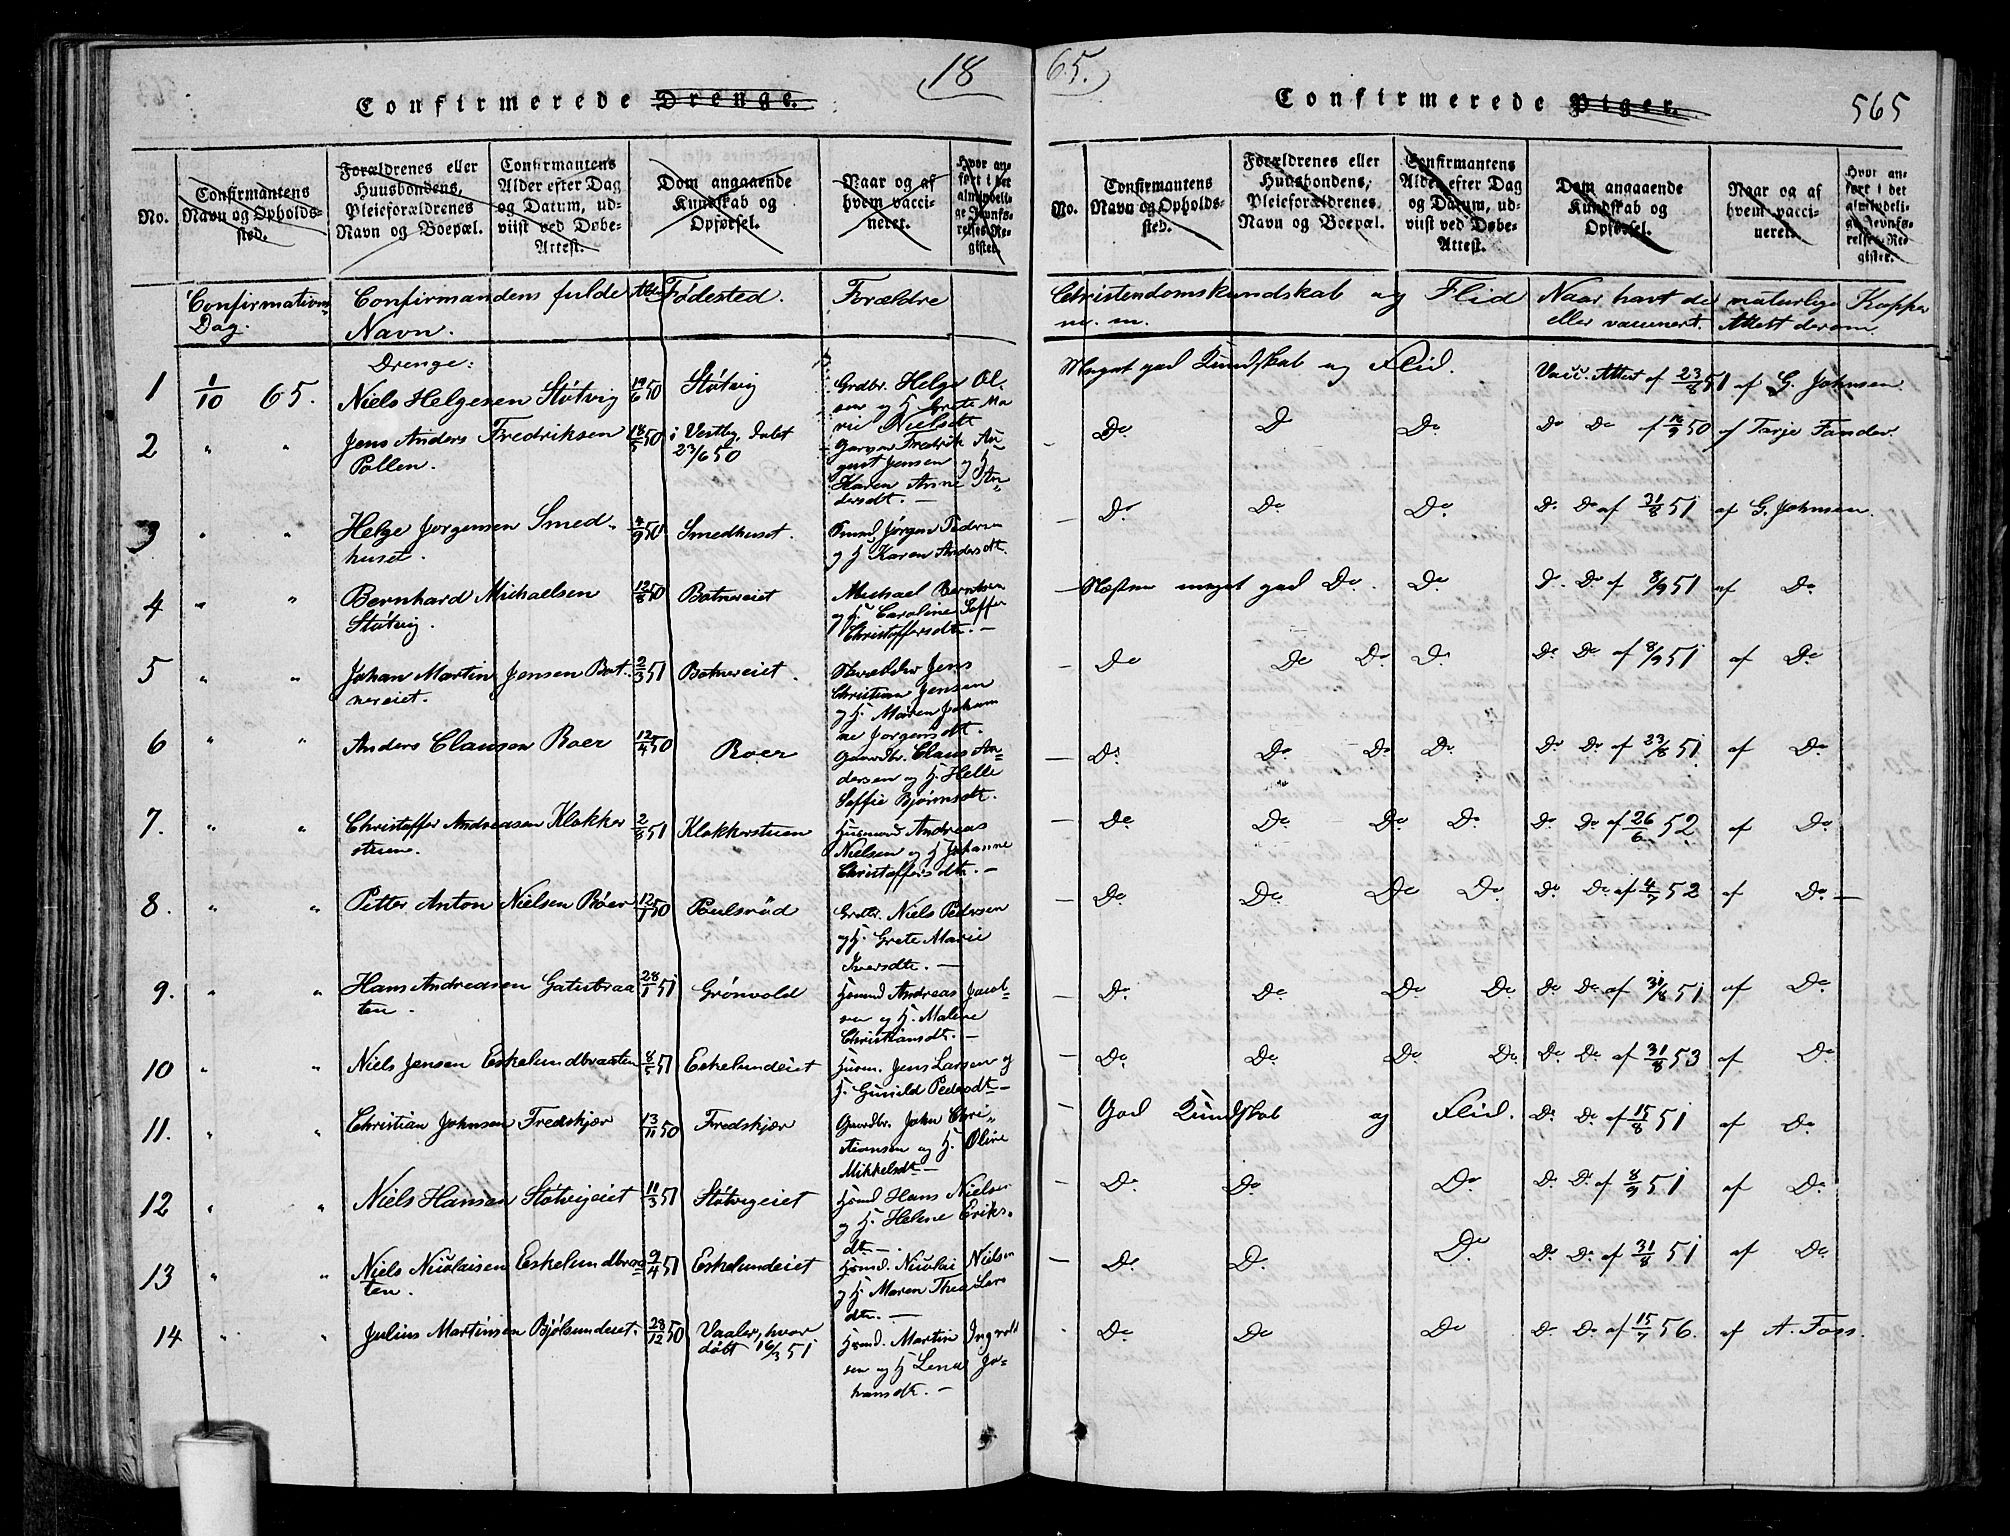 18 65.
Confirmerede Drenge.
Confirmerede Piger.
565
No.
Confirmantens Navn og Opholds-sted.
Forældrenes eller Huusbondens, Pleieforældrenes Navn og Boepæl.
Confirmantens Alder efter Dag og Datum, ud-viist ved Døbe-Attest.
Dom angaaende Kundskab og Opførsel.
Naar og af hvem vacci-neret.
Hvor an-ført i det almindeli-ge Jevnfø-relses-Re-gister.
No.
Confirmantens Navn og Opholds-sted.
Forældrenes eller Huusbondens, Pleieforældrenes Navn og Boepæl.
Confirmantens Alder efter Dag og Datum, ud-viist ved Døbe-Attest.
Dom angaaende Kundskab og Opførsel.
Naar og af hvem vacci-neret.
Hvor an-ført i det almindeli-ge Jevnfø-relses-Re-gister.
Confirmations Dag. Confirmandens fulde Navn. Alder Fødested. Forældre
Christendomskundskab og Flid m. m. Naar havt de naturlige Kopper eller vaccineret. Attest derom.
Drenge:
1 1/10 65. Niels Helgesen Støtvig 19/6 50 Støtvig Grdbr. Helge Ol-sen og H. Grete Ma-rie Nielsdt
Meget god Kundskab og Flid. Vacc. Attest af 23/8 51 af G. Johnsen
2 " " Jens Anders Fredriksen Pollen. 18/5 50 i Vestby, døbt 23/6 50 Garver Fredrik Au-gust Jensen og H. Karen Anne An-dersdt. —
Do D Do Do Do af 12/9 50 af Tarje Fander.
3 " " Helge Jørgensen Smed-huset. 4/9 50 Smedhuset. Hmnd. Jørgen Pedersen og H. Karen Andersdt.
Do Do Do D. Do af 31/8 51 af G. Johnsen.
4 " " Bernhard Michaelsen Støtvig. 12/8 50 Botnereiet Michael Berntsen og H. Caroline Soffie Christoffersdt. —
Næsten meget god Do. Do D. Do af 8/9 51 af Do
5 " " Johan Martin Jensen Bot-nereiet. 2/3 51 Botnereiet. Skrædder Jens Christian Jensen og H. Maren Johan-ne Jørgensdt.
Do Do Do Do Do Do af 8/9 51 af Do
6 " " Anders Clausen Roer 12/4 50 Roer Gaardbr. Claus An-dersen og H. Helle Soffie Bjørnsdt.
Do Do Do Do Do Do af 23/8 51 af Do
7. " " Christoffer Andreasen Klokker stuen. 2/8 51 Klokkerstuen Husmand Andreas Nielsen og H. Johanne Christoffersdt. —
Do Do Do Do Do Do af 26/6 52 af Do
8. " " Petter Anton Nielsen Roer 12/1 50 Poulsrød Grdbr. Niels Pedersen og H. Grete Marie Iversdt. —
Do Do Do Do Do Do af 4/7 52 af Do —
9. " " Hans Andreasen Gatubraa-ten. 28/1 51 Grønvold Hsmnd Andreas Jacob-sen og H. Maline Christiansdt. —
Do Do Do Do Do Do af 31/8 51 af Do
10 " " Niels Jensen Eskelundbraaten 8/5 51 Eskelundeiet Husm. Jens Larsen og H. Gunild Pedersdt —
Do Do Do Do Do Do af 31/8 53 af Do
11. " " Christian Johnsen Fredskjær 13/11 50 Fredskjær Gaardbr. John Chri-stensen og H. Oline Mikkelsdt —
God Kundskab og Flid. Do Do af 15/8 51 af Do
12 " " Niels Hansen Støtvigeiet 11/3 51 Støtvigeiet Hsmd Hans Nielsen og H. Helene Eriks-dt —.
Do Do Do Do Do af 8/9 51 af Do
13 " " Niels Nicolaisen Eskelundbraa-ten. 9/4 51 Eskelundeiet Hsmd. Nicolai Nielsen og H. Maren Thea Lars dt. —
Do Do Do Do Do af 31/8 51 af Do
14 " " Julius Martinsen Bjølsundeiet. 28/12 50 Vaaler, hvor døbt 16/3 51. Hsmd. Martin Ingvold-sen og H Lena Jo-hansdt. —
Do Do Do Do Do af 15/7 56. af A. Foss.